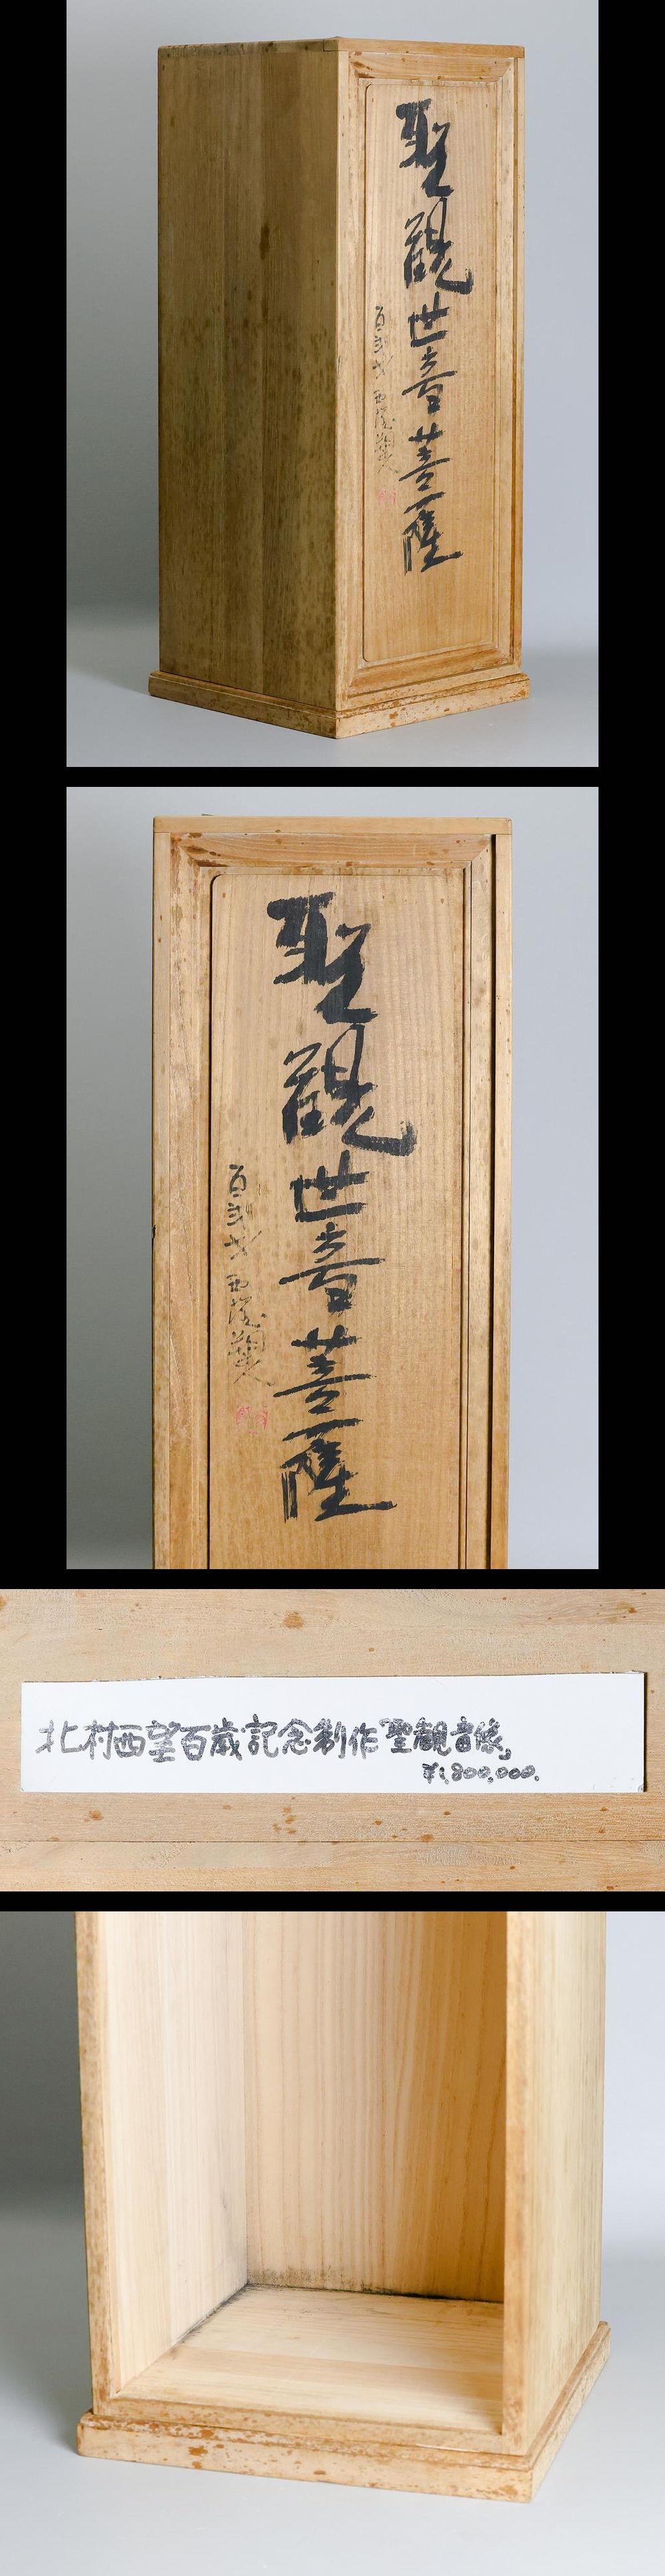 聖観世音菩薩
百弐才 西望
聖観世音菩薩
百弐才 西望
北村西望百歳記念制作『聖観音像』
¥1,800,000.